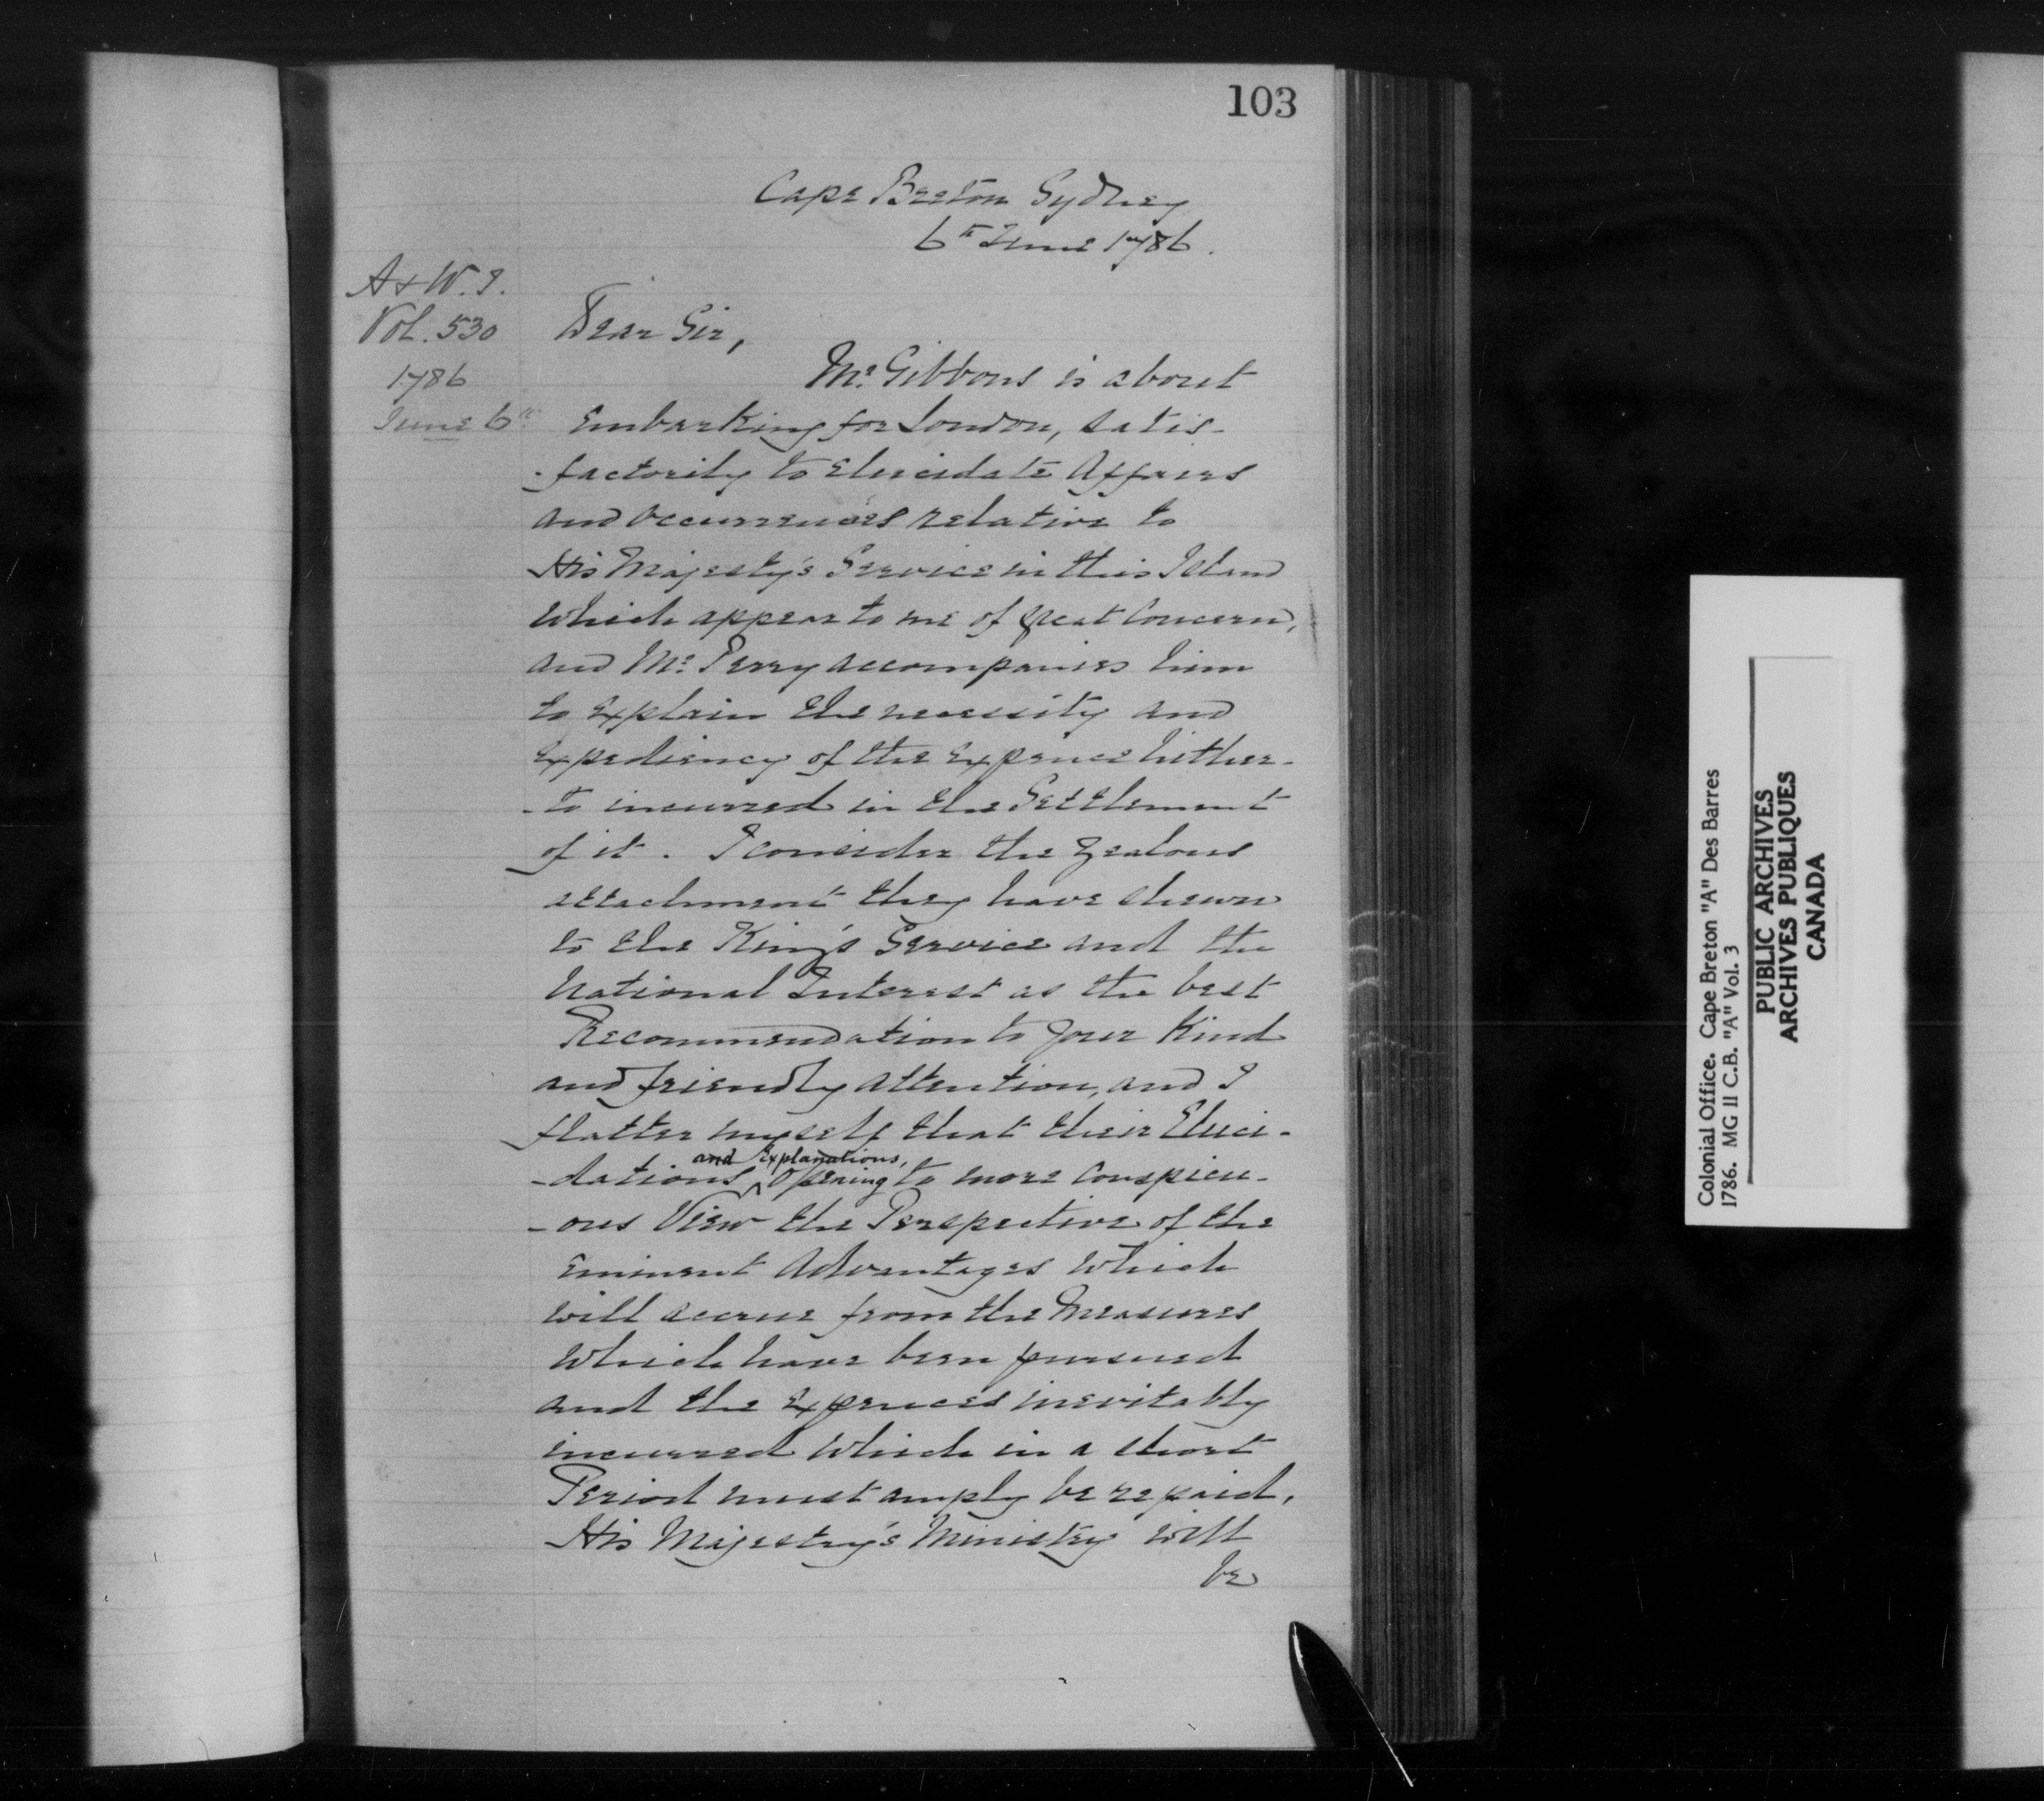 103
Cape Breton Sydney
6th June 1786.
A & W. I.
Vol. 530
1786
June 6th
Dear Sir,
Mr. Gibbons is about
Embarking for London, satis-
-factorily to Elucidate Affairs
and Occurrences relative to
His Majesty's Service in this Island
which appear to me of great Concern,
and Mr. Perry accompanies him
to Explain the necessity and
Expediency of the Expence hither-
-to incurred in the Settlement
of it. I consider the zealous
attachment they have shewn
to the King's Service and the
National Interest as the best
Recommendation to your Kind
and friendly attention, and I
flatter myself that their Eluci-
and Explanations,
-dations ^ Opening to more Conspicu-
-ous View the Perspective of the
Eminent Advantages which
will accrue from the Measures
which have been pursued
and the Expences inevitably
incurred which in a short
Period must amply be repaid,
His Majesty's Ministry will
be
Colonial Office. Cape Breton "A" Des Barres
1786. MG 11 C.B. "A" Vol. 3
PUBLIC ARCHIVES
ARCHIVES PUBLIQUES
CANADA